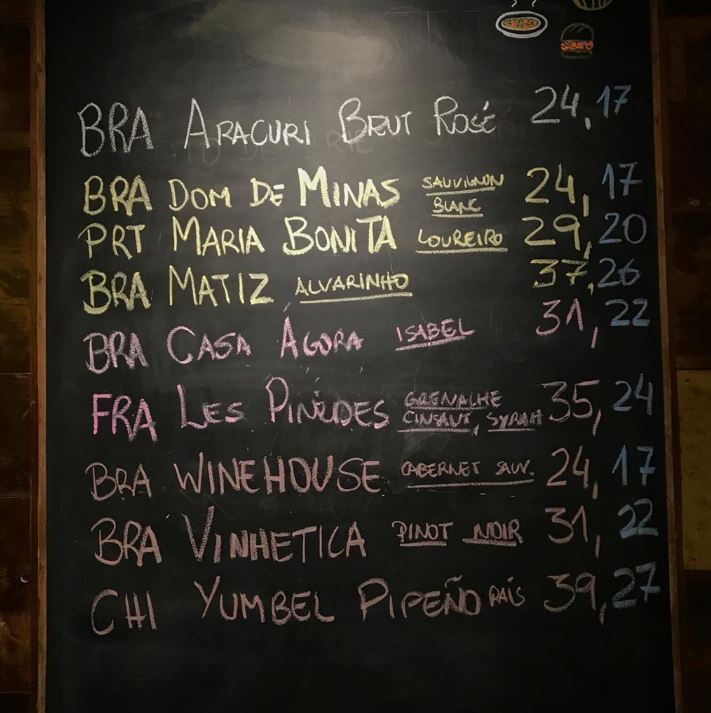 BRA ARACURI BRUT ROSÉ 24, 17
BRA DOM DE MINAS SAUVIGNON BLANC 24, 17
PRT MARIA BONITA LOUREIRO 29, 20
BRA MATIZ ALVARINHO 37, 26
BRA CASA ÁGORA ISABEL 31, 22
FRA LES PINÈDES GRENACHE CINSAUT, SYRAH 35, 24
BRA WINEHOUSE CABERNET SAUV. 24, 17
BRA VINHETICA PINOT NOIR 31, 22
CHI YUMBEL PIPEÑO PAÍS 39, 27